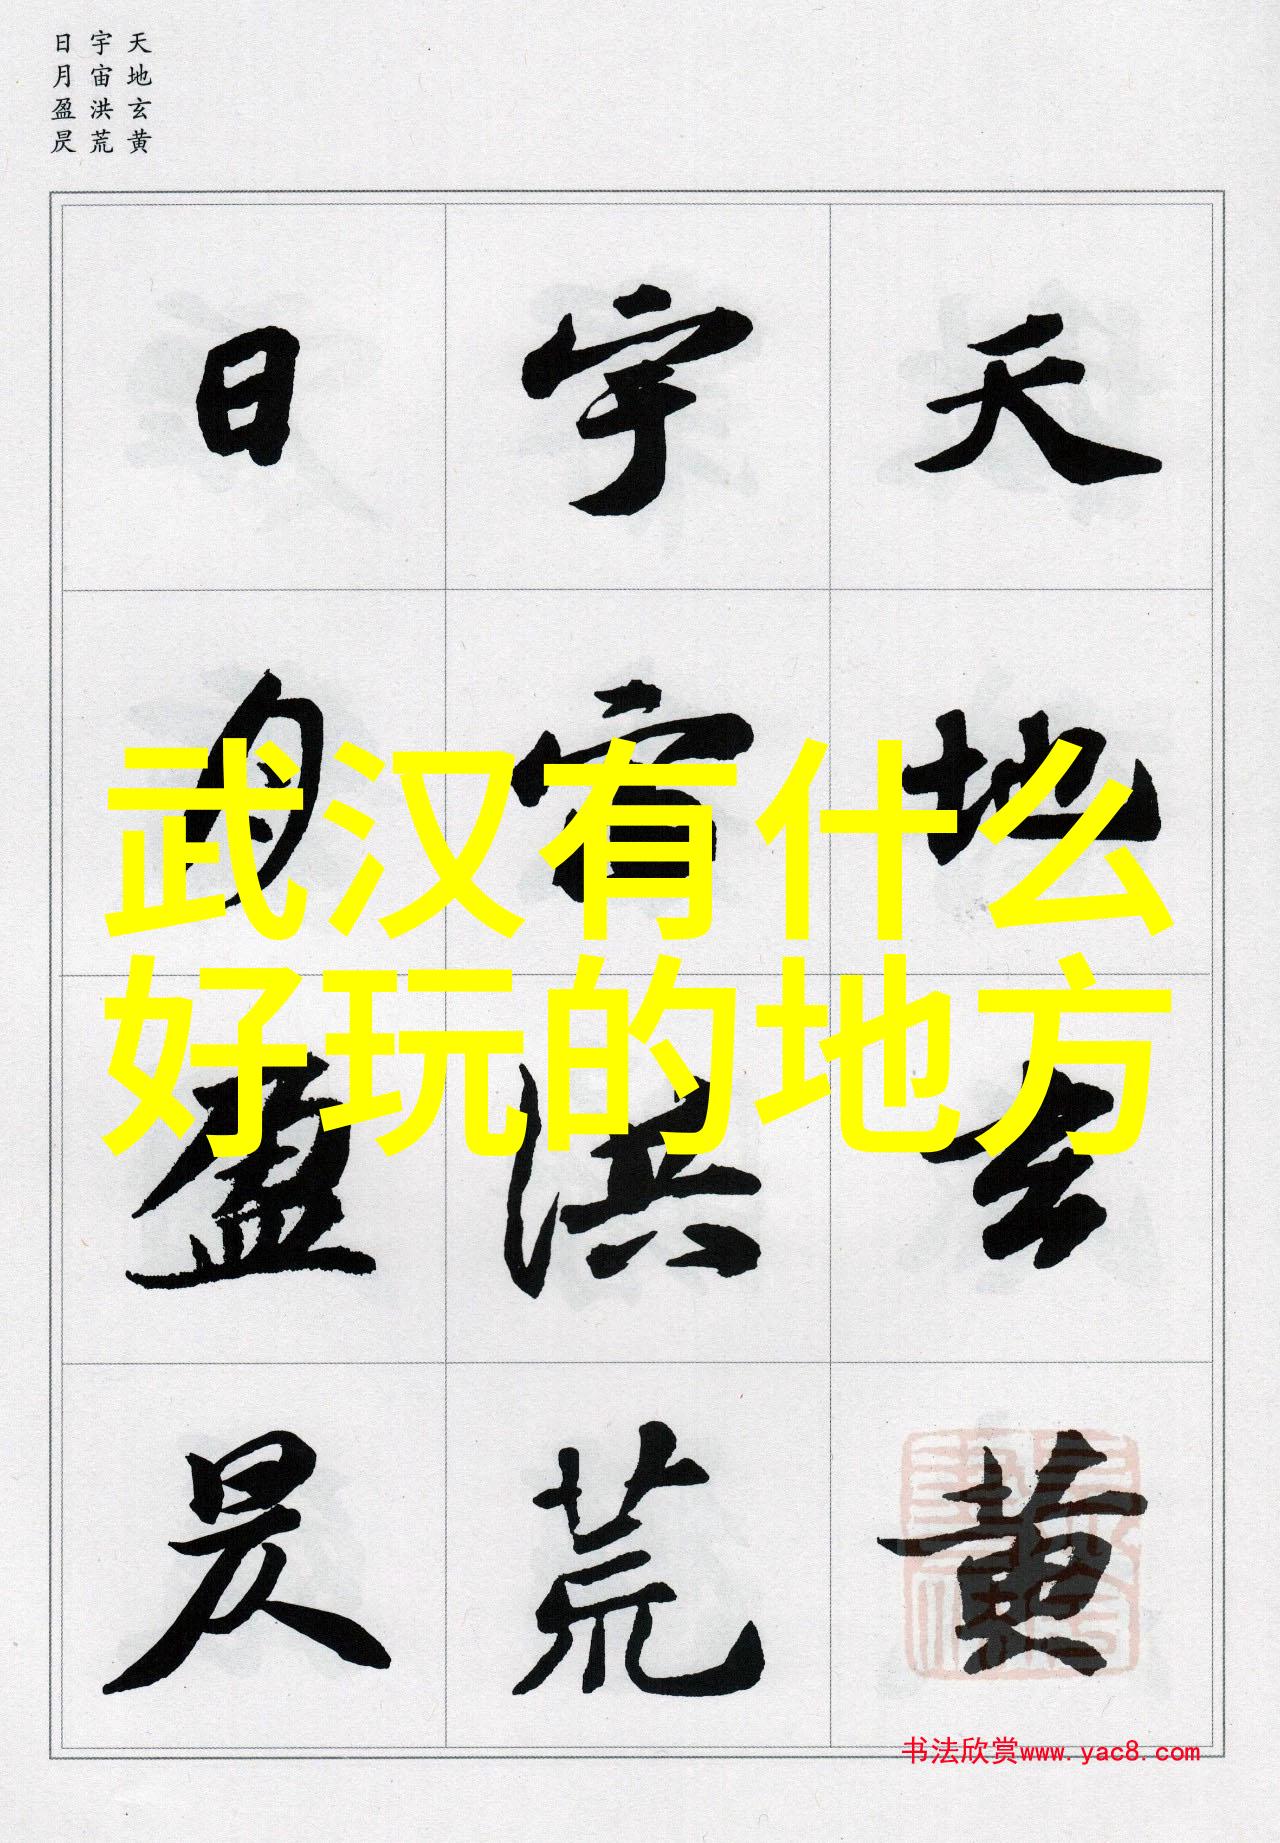 天地玄黄
宇宙洪荒
日月盈昃
天地玄黄
宇宙洪荒
日月盈昃
武汉有什么
好玩的地方
书法欣赏www.yac8.com